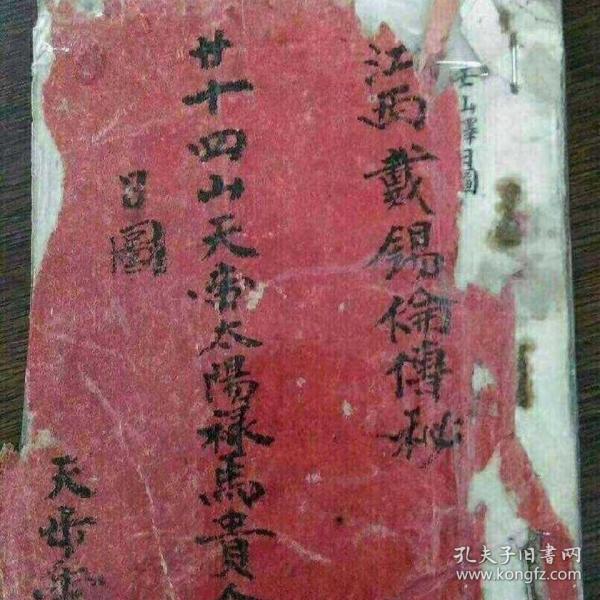 山擇日圖
江西戴錫倫傳秘
廿十四山天帝太陽祿馬貴
呂圖
天帝
孔夫子旧书网
www.kongfz.com